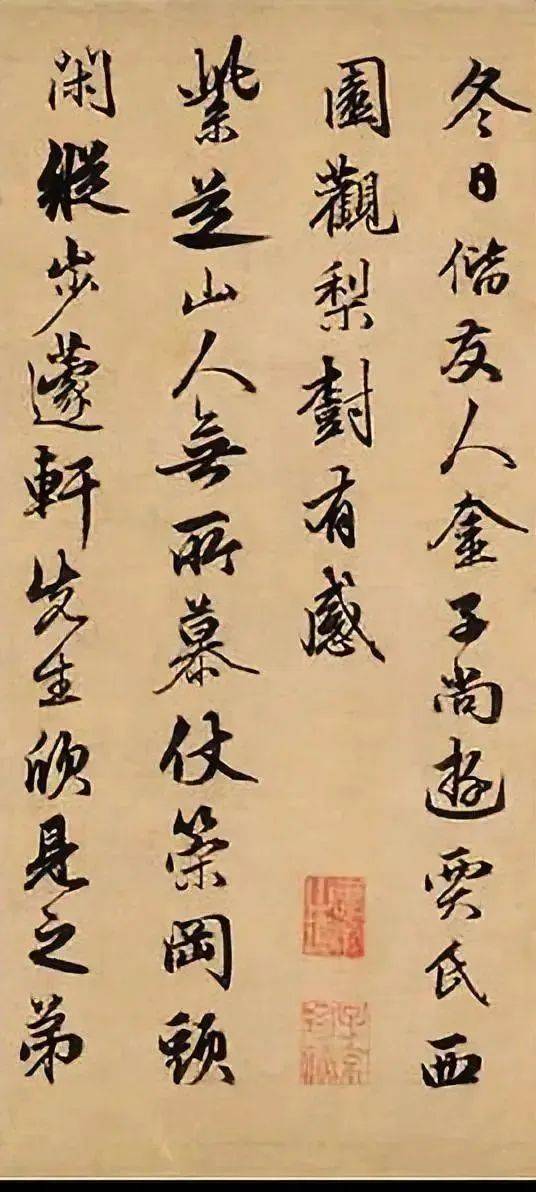 冬日偕友人金子尚遊賈氏西
園觀梨樹有感
紫芝山人無所慕仗策岡頭
閑縱步蘧軒先生欣見之弟